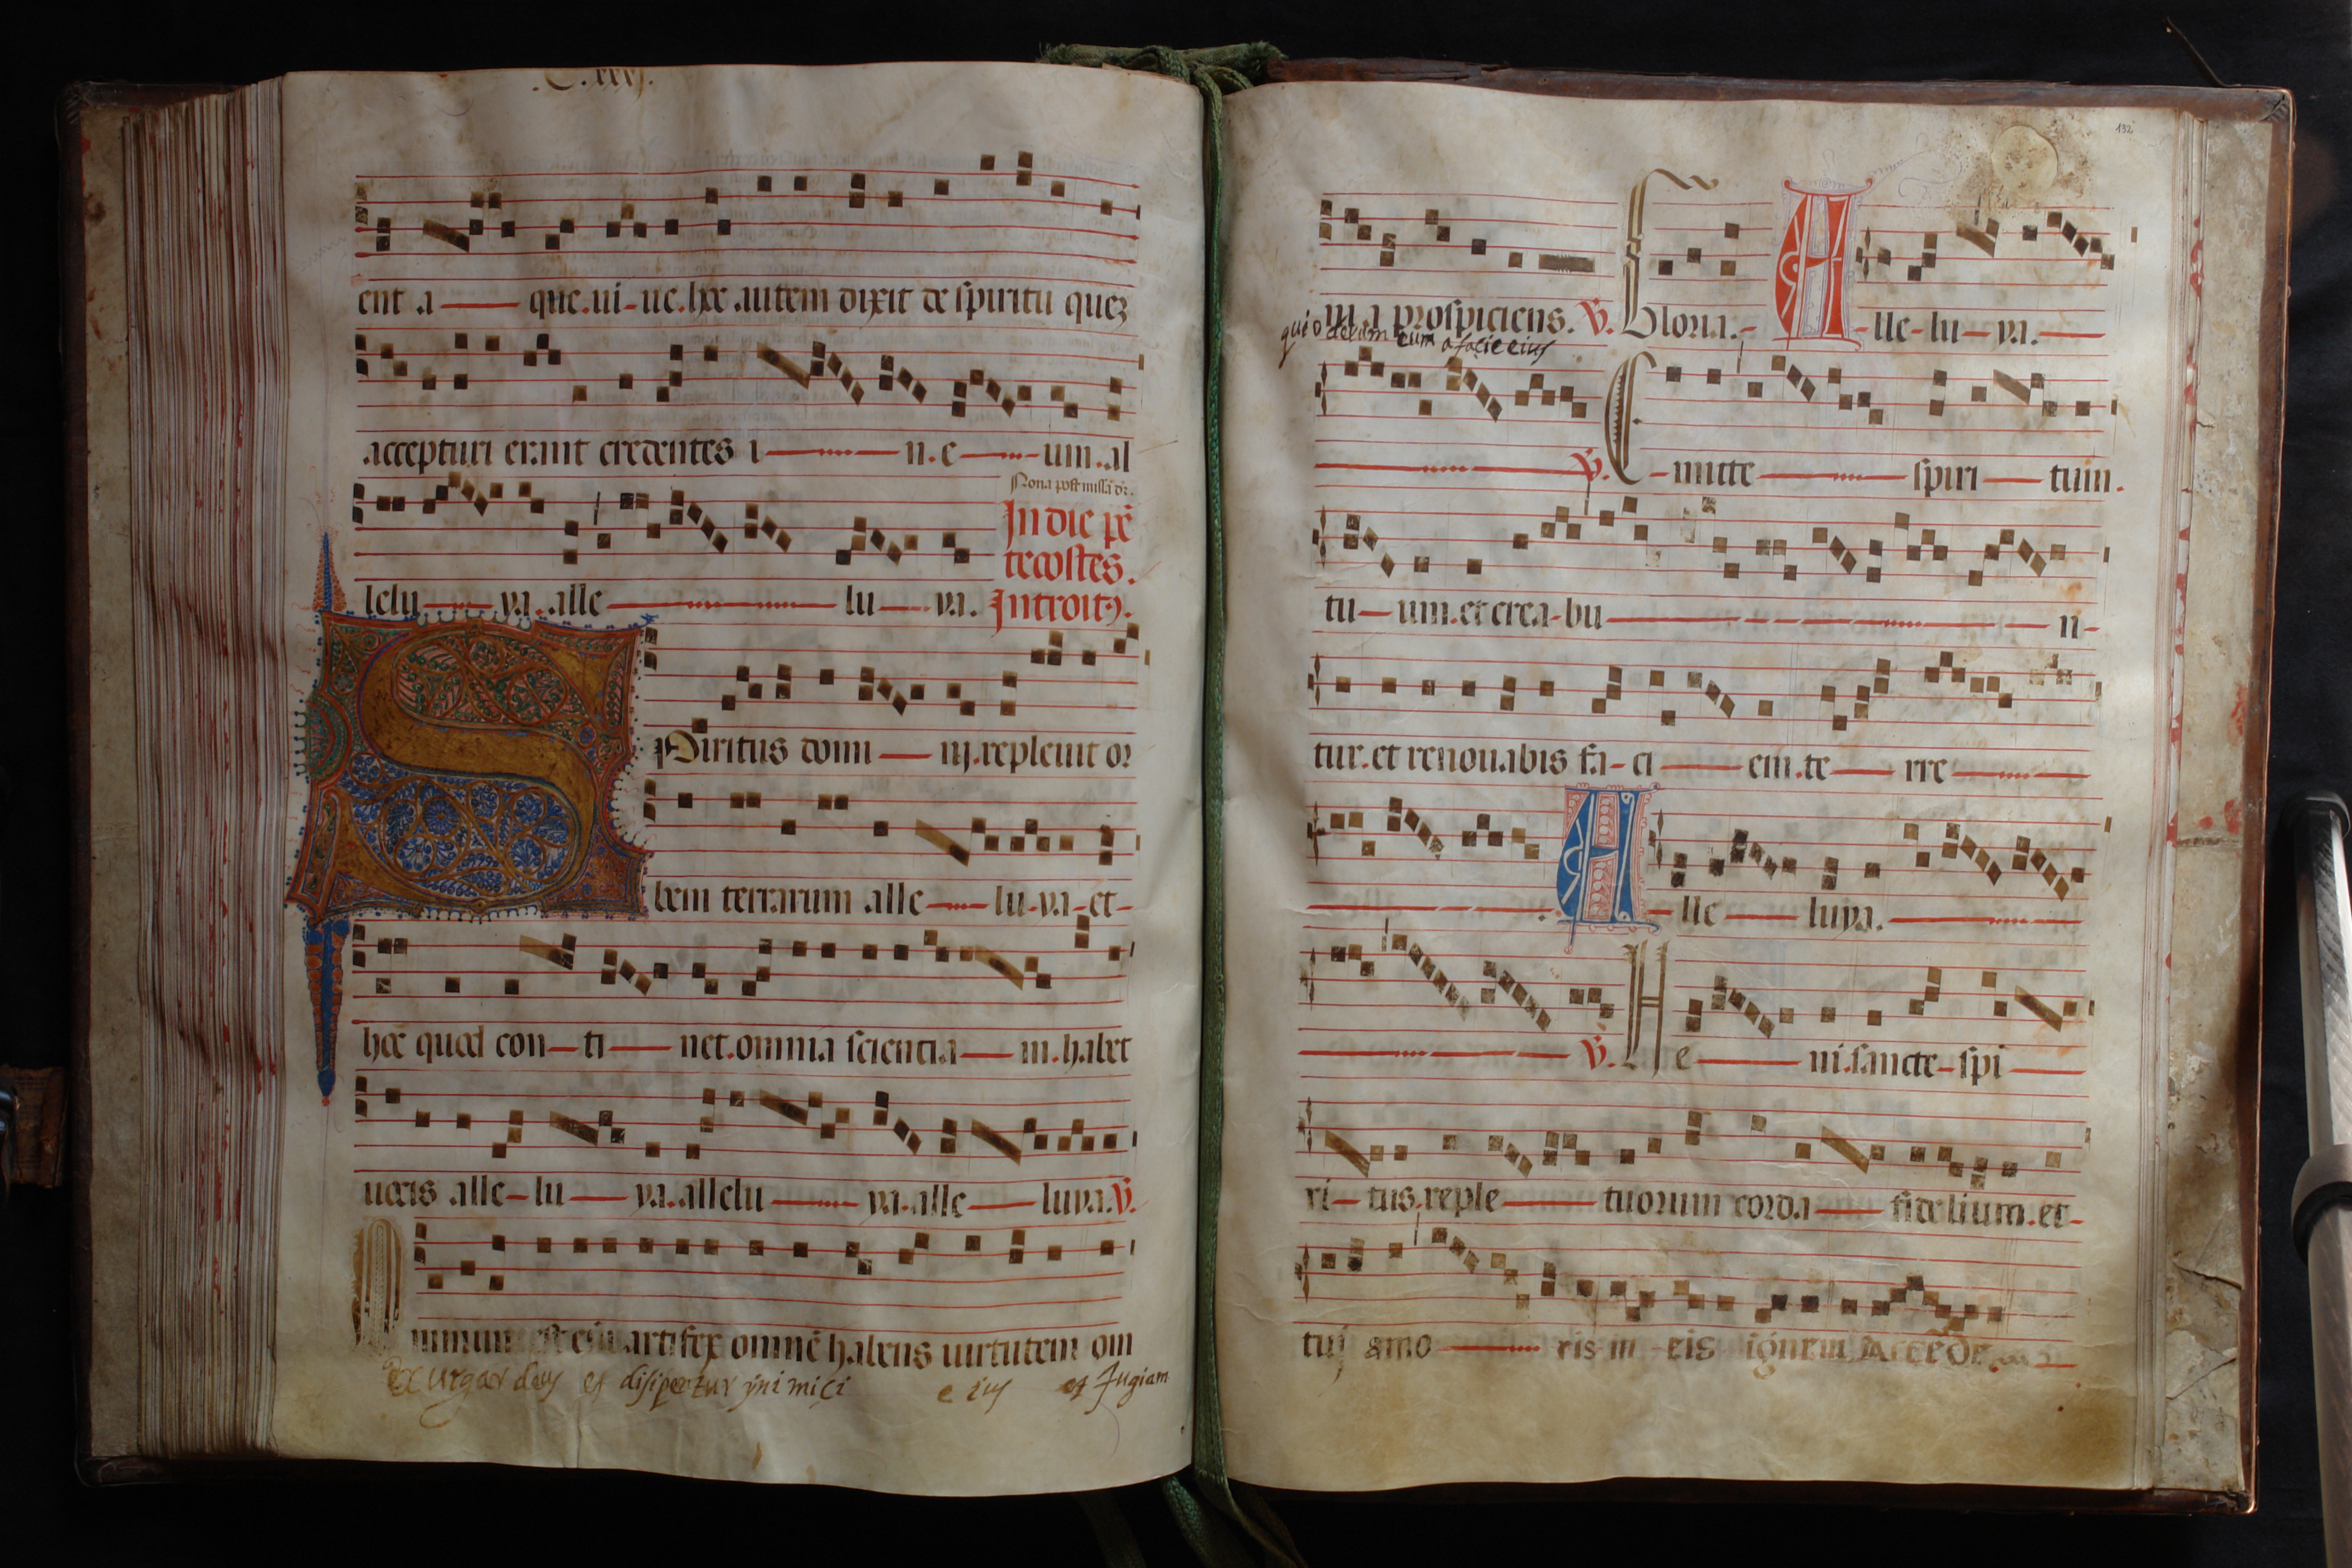 .C.xxxj.
ent a que.ui-ue.hoc autem dixit de spiritu quez
accepturi erant credentes i n.e um.al
Nona post missã dr̃.
In die pẽ
tecostes.
lelu ya.alle lu ya. Introitꝯ.
SPiritus domi nj.repleuit or
bem terrarum alle lu-ya-et-
hoc quod con-ti net.omnia scientia m.habet
uocis alle-lu ya.allelu ya.alle luya.V̄.
mnium est eñi artifex omnẽ habens uirtutem om
Exurgat deus et disipetur ynimici eius et fugiam
132
nia prospiciens. V̄. Gloria.- A-lle-lu-ya.
qui oderunt eum a facie eius
V̄. E-mitte spiri tum.
tu-um.et crea-bu n-
tur.et renouabis fa-ci em.te rre
A-lle luya.
V̄. Ve ni.sancte-spi
ri-tus.reple tuorum corda fidelium.et-
tuj amo ris in eis ignem Accẽde